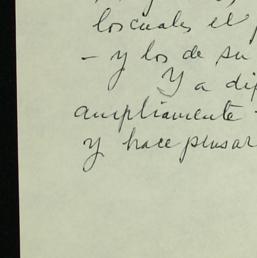 los cuales el
- y los de su
Y a
ampliamente
y hace pensar